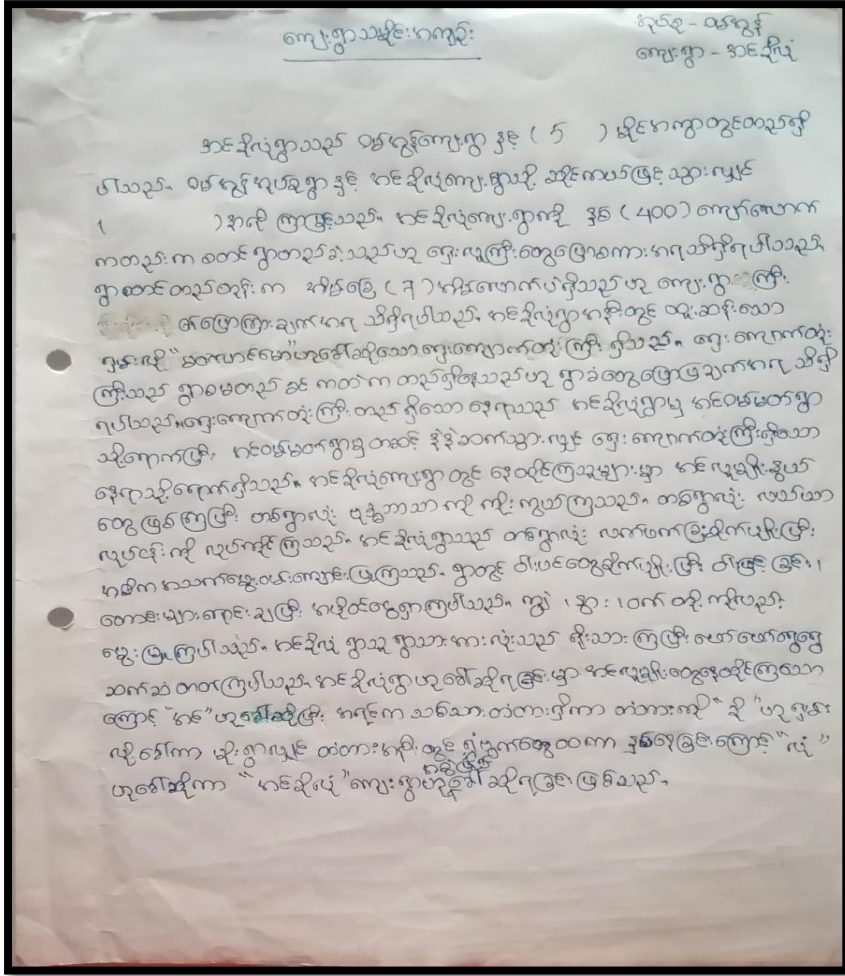 ကျေးရွာသမိုင်းအကျဉ်း
အုပ်စု - ဝမ်ဟွန်
ကျေးရွာ - အင်ဆိုလုံ
အင်ဆိုလုံရွာသည် ဝမ်ဟွန်ကျေးရွာ နှင့် ( 5 ) မိုင်အကွာတွင်တည်ရှိ
ပါသည်။ ဝမ်ဟွန်အုပ်စုရွာ နှင့် အင်ဆိုလုံကျေးရွာသို့ ဆိုင်ကယ်ဖြင့်သွားလျှင်
( ) နာရီ ကြာမြင့်သည်။ အင်ဆိုလုံကျေးရွာကို နှစ် (400) ကျော်လောက်
ကတည်းက စတင်ရွာတည်ခဲ့သည်ဟု ရှေးလူကြီးတွေပြောစကားအရသိရှိရပါသည်။
ရွာစတင်တည်တုန်းက အိမ်ခြေ (၇) အိမ်လောက်ပဲရှိသည်ဟု ကျေးရွာ ကြီး
ပြောကြားချက်အရ သိရှိရပါသည်။ အင်ဆိုလုံရွာအနီးတွင် ထူးဆန်းသော
ရှမ်းလို ဟုခေါ်ဆိုသောရှေးကျောက်တုံးကြီး ရှိသည်။ ရှေးကျောက်တုံး
ကြီးသည် ရွာစမတည် ခင် ကတဲက တည်ရှိနေသည်ဟု ရွာခံတွေပြောပြချက်အရ သိရှိ
ရပါသည်။ ရှေးကျောက်တုံးကြီး တည်ရှိသော နေရာသည် အင်ဆိုလုံရွာမှ အင်ဝမ်မတ်ရွာ
သို့ရောက်ပြီး အင်ဝမ်မတ်ရွာမှတဆင့် နဲနဲဆက်သွားလျှင် ရှေးကျောက်တုံးကြီးရှိသော
နေရာသို့ရောက်ရှိသည်။ အင်ဆိုလုံကျေးရွာတွင် နေထိုင်ကြသူများမှာ အင်လူမျိုးနွယ်
တွေဖြစ်ကြပြီး တစ်ရွာလုံး ဗုဒ္ဓဘာသာကို ကိုးကွယ်ကြသည်။ တစ်ရွာလုံး လယ်ယာ
လုပ်ငန်းကို လုပ်ကိုင်ကြသည်။ အင်ဆိုလုံရွာသည် တစ်ရွာလုံး လက်ဖက်ခြံစိုက်ပျိုးပြီး
အဓိကအသက်မွေးဝမ်းကျောင်းပြုကြသည်။ ရွာတွင် ဝါးပင်တွေစိုက်ပျိုးပြီး ဝါးဖြင့် ခြင်း၊
တောင်းများရောင်းချပြီး အပိုဝင်ငွေရှာကြပါသည်။ ကျွဲ၊ နွား၊ ဝက် တို့ကိုလည်း
မွေးမြူကြပါသည်။ အင်ဆိုလုံ ရွာသူရွာသားအားလုံးသည် ရိုးသားကြပြီး ဖော်ဖော်ရွေရွေ
ဆက်ဆံတတ်ကြပါသည်။ အင်ဆိုလုံရွာဟု ခေါ်ဆိုရခြင်းမှာ အင်လူမျိုးတွေနေထိုင်ကြသော
ကြောင့် "အင်" ဟုခေါ်ဆိုပြီး အရင်က သစ်သားတံတားရှိကာ တံတားကို " ဆို " ဟု ရှမ်း
လိုခေါ်ကာ မိုးရွာလျှင် တံတားအနီးတွင် ရွှံ့ဗွက်တွေထကာ နစ်နေခြင်းကြောင့် " လုံ "
ဟုခေါ်ဆိုကာ " အင်ဆိုလုံ " ကျေးရွာဟူ၍ တွင်ခေါ်ဆိုရခြင်း ဖြစ်သည်။